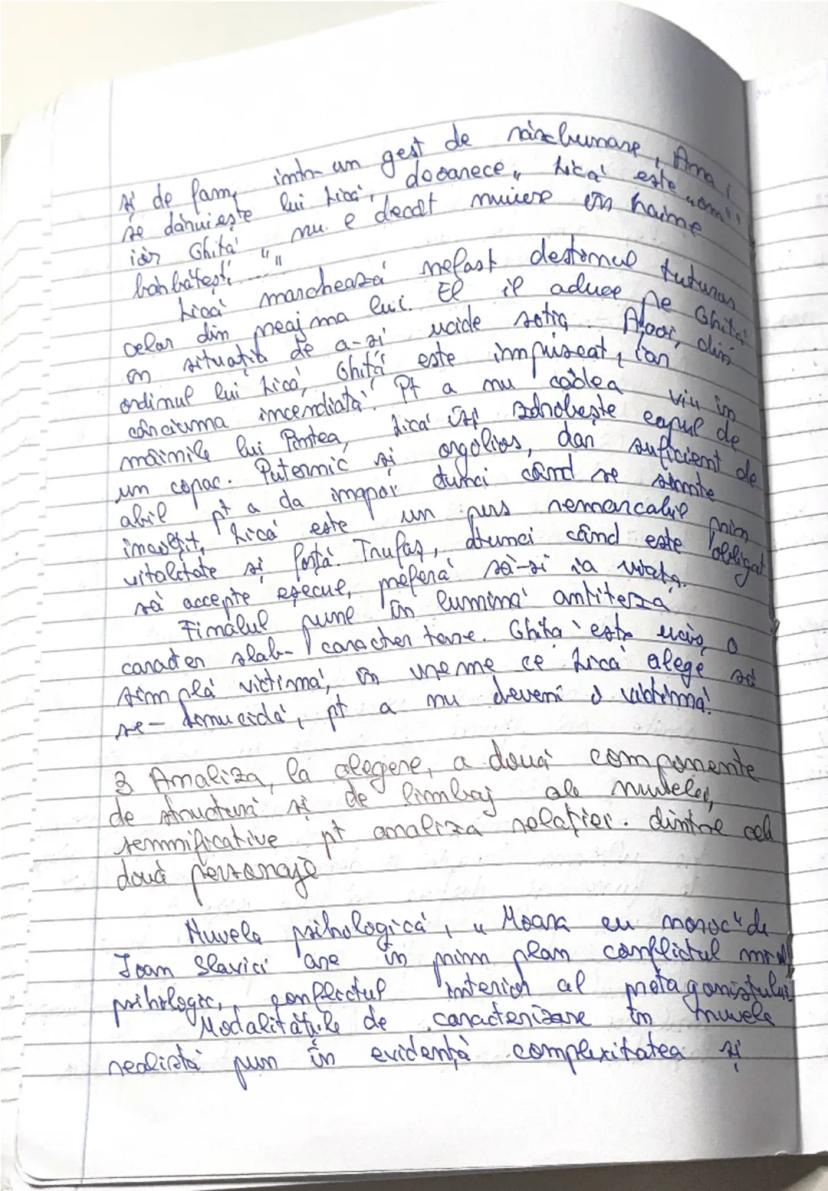 și de fam, într-un gest de răzbunare, Ana,
se dăruiește lui Lică, deoarece „ Lică este „om"
iar Ghiță „ nu e decât muiere în haine
bărbătești ..."
Lică marchează nefast destinul tuturor
celor din preajma lui. El îl aduce pe Ghiță
în situația de a-și ucide soția. Apoi, din
ordinul lui Lică, Ghiță este împușcat, iar
cârciuma incendiată. Pt a nu cădea viu în
mâinile lui Pintea, Lică își zdrobește capul de
un copac. Puternic și orgolios, dar suficient de
abil pt a da înapoi atunci când se simte
încolțit, Lică este un pers remarcabil prin
vitalitate și forță. Trufaș, atunci când este obligat
să accepte eșecul, preferă să-și ia viața.
Finalul pune în lumină antiteza
caracter slab- caracter tare. Ghiță este ucis, o
simplă victimă, în vreme ce Lică alege să
se-sinucidă, pt a nu deveni o victimă.
3 Analiza, la alegere, a două componente
de structură și de limbaj ale nuvelei,
semnificative pt analiza relației. dintre cele
două personaje
Nuvela psihologică, „ Moara cu noroc" de
Ioan Slavici are în prim plan conflictul moral
psihologic, conflictul interior al protagonistului.
Modalitățile de caracterizare în nuvela
realistă pun în evidență complexitatea și